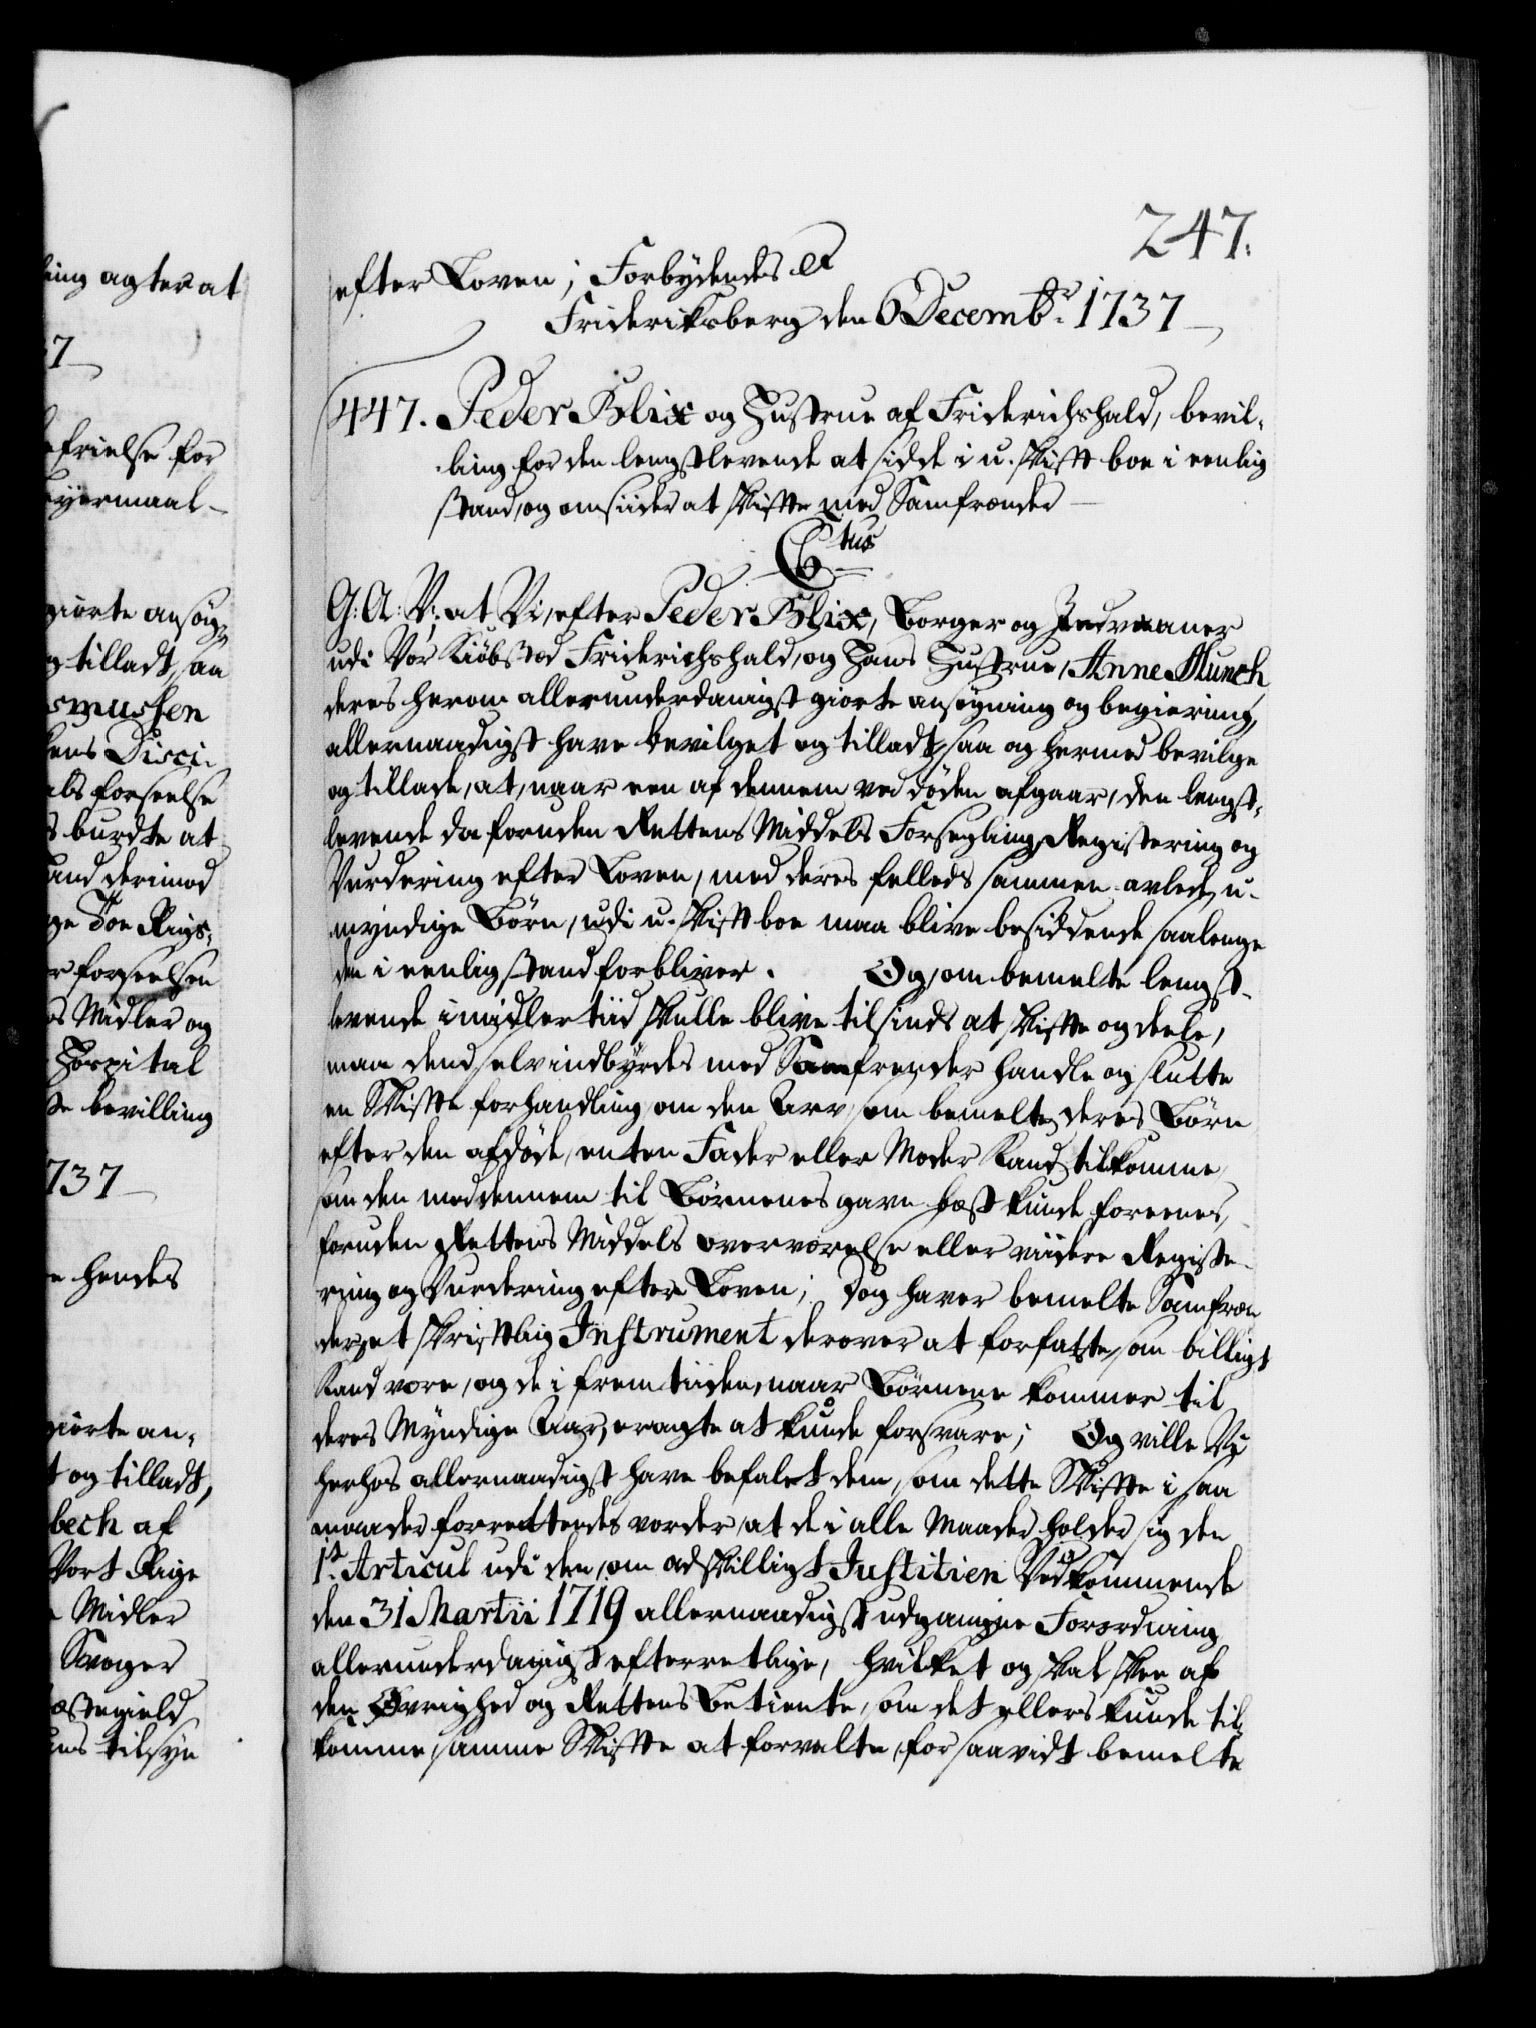 247.
efter Loven; Forbydendes et
Frideriksberg den 6 Decembr. 1737
447. Peder Blix og Hustrue af Friderichshald, bevil-
ling for den lengstlevende at sidde i u-skift boe i eenlig
stand, og omsiider at skifte med Samfrender
Ctus
G: A: V: at Vi, efter Peder Blix, Borger og Indvaaner
udi Vor Kiøbsted Friderichshald, og Hans Hustrue, Anne Munch
deres herom allerunderdanigst giorte ansøgning og begiering,
allernaadigst have bevilget og tilladt, saa og hermed bevilge
og tillade, at, naar een af dennem ved døden afgaar, den lengst-
levende da foruden Rettens Middels Forsegling, Registering og
Vurdering efter Loven, med deres felleds sammen avlede, u-
myndige Børn, udi u-skift boe maa blive besiddende saalenge
den i eenlig stand forbliver. Og, om bemelte lengst-
levende imidlertiid skulle blive tilsinds at skifte og deele,
maa dend selv indbyrdes med Samfrender handle og slutte
en Skifte forhandling om den Arv, som bemelte deres Børn
efter den afdøde, enten Fader eller Moder kand tilkomme,
som den med dennem til Børnenes gavn best kunde foreenes,
foruden Rettens Middels overværelse eller viidere Registe-
ring og Vurdering efter Loven; dog haver bemelte Samfræn
der et skriftlig Instrument derover at forfatte, som billigt
kand være, og de i fremtiiden, naar Børnene kommer til
deres Myndige Aar, eragte at kunde forsvare; Og ville Vi
herhos allernaadigst have befalet dem, som dette Skifte i saa
maader forrettendes vorder, at de i alle Maader holder sig den
1st. Articul udi den, om adskilligt Justitien Vedkommende
den 31 Martii 1719 allernaadigst udgangne Forordning
allerunderdanigst efterretlige, hvilket og skal skee af
den Øvrighed og Rettens Betiente, som det ellers kunde til-
komme, samme Skifte at forvalte, for saavidt bemelte